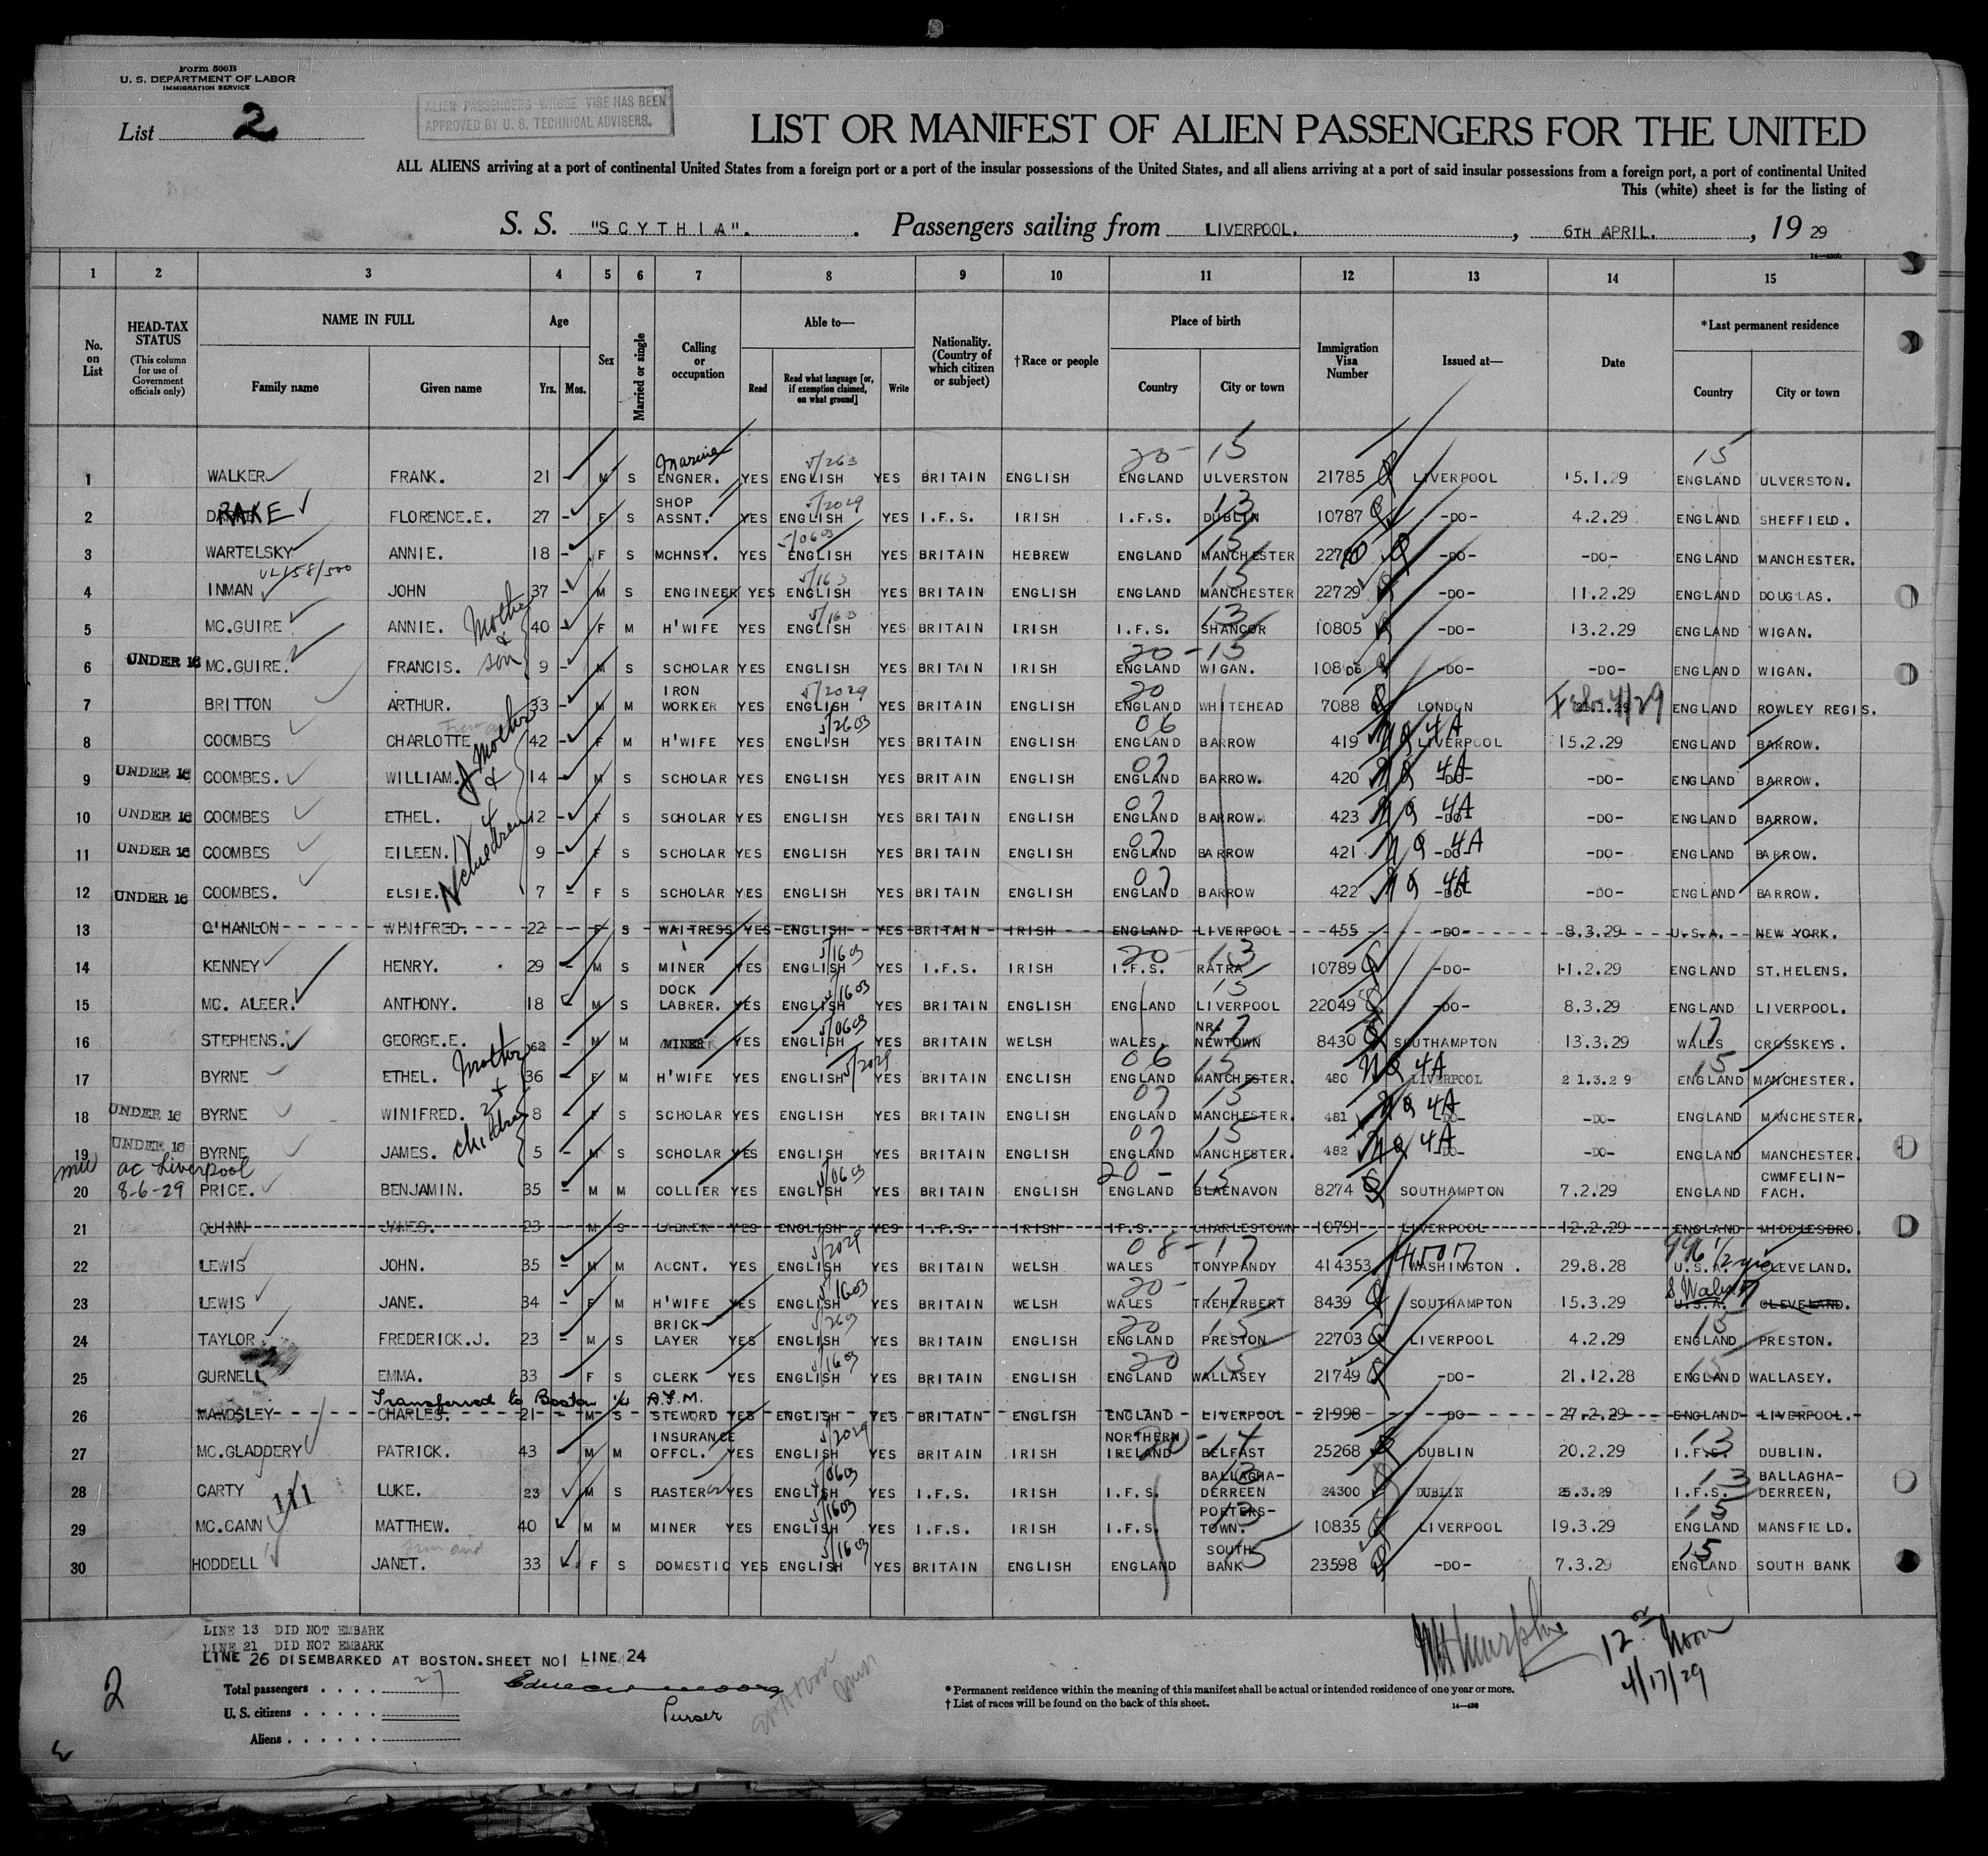 Form 500B
U. S. DEPARTMENT OF LABOR
IMMIGRATION SERVICE
List 2
ALIEN PASSENGERS WHOSE VISE HAS BEEN
APPROVED BY U. S. TECHNICAL ADVISERS.
LIST OR MANIFEST OF ALIEN PASSENGERS FOR THE UNITED
ALL ALIENS arriving at a port of continental United States from a foreign port or a port of the insular possessions of the United States, and all aliens arriving at a port of said insular possessions from a foreign port, a port of continental United
This (white) sheet is for the listing of
S. S. "SCYTHIA". Passengers sailing from LIVERPOOL. , 6TH APRIL. , 19 29
1 2 3 4 5 6 7 8 9 10 11 12 13 14 15
No. on List HEAD-TAX STATUS (This column for use of Government officials only) NAME IN FULL Family name Given name Age Yrs. Mos. Sex Married or single Calling or occupation Able to— Read Read what language [or, if exemption claimed, on what ground] Write Nationality. (Country of which citizen or subject) †Race or people Place of birth Country City or town Immigration Visa Number Issued at— Date *Last permanent residence Country City or town
20- 15 15
1 WALKER FRANK. 21 M S Marine ENGNER. YES ENGLISH YES BRITAIN ENGLISH ENGLAND ULVERSTON 21785 LIVERPOOL 15.1.29 ENGLAND ULVERSTON.
2 RAKE FLORENCE.E. 27 - F S SHOP ASSNT. YES ENGLISH YES I.F.S. IRISH I.F.S. DUBLIN 10787 -DO- 4.2.29 ENGLAND SHEFFIELD.
3 WARTELSKY ANNIE. 18 - F S MCHNST. YES ENGLISH YES BRITAIN HEBREW ENGLAND MANCHESTER -DO- -DO- ENGLAND MANCHESTER.
4 INMAN JOHN 37 - M S ENGINEER YES ENGLISH YES BRITAIN ENGLISH ENGLAND MANCHESTER 22729 -DO- 11.2.29 ENGLAND DOUGLAS.
5 MC.GUIRE ANNIE. Mother & son 40 - F M H'WIFE YES ENGLISH YES BRITAIN IRISH I.F.S. SHANGOR 10805 -DO- 13.2.29 ENGLAND WIGAN.
6 UNDER 16 MC.GUIRE. FRANCIS. 9 - M S SCHOLAR YES ENGLISH YES BRITAIN IRISH ENGLAND WIGAN. 10806 -DO- -DO- ENGLAND WIGAN.
7 BRITTON ARTHUR. 33 - M M IRON WORKER YES ENGLISH YES BRITAIN ENGLISH ENGLAND WHITEHEAD 7088 LONDON Feb 4/29 ENGLAND ROWLEY REGIS.
8 COOMBES CHARLOTTE Mother & 4 children 42 - F M H'WIFE YES ENGLISH YES BRITAIN ENGLISH ENGLAND BARROW 419 NQ 4A LIVERPOOL 15.2.29 ENGLAND BARROW.
9 UNDER 16 COOMBES. WILLIAM. 14 - M S SCHOLAR YES ENGLISH YES BRITAIN ENGLISH ENGLAND BARROW. 420 NQ 4A -DO- -DO- ENGLAND BARROW.
10 UNDER 16 COOMBES ETHEL. 12 - F S SCHOLAR YES ENGLISH YES BRITAIN ENGLISH ENGLAND BARROW. 423 NQ 4A -DO- -DO- ENGLAND BARROW.
11 UNDER 16 COOMBES EILEEN. 9 - F S SCHOLAR YES ENGLISH YES BRITAIN ENGLISH ENGLAND BARROW 421 NQ 4A -DO- -DO- ENGLAND BARROW.
12 UNDER 16 COOMBES. ELSIE. 7 - F S SCHOLAR YES ENGLISH YES BRITAIN ENGLISH ENGLAND BARROW 422 NQ 4A -DO- -DO- ENGLAND BARROW.
13 O'HANLON WINIFRED. 22 - F S WAITRESS YES ENGLISH YES BRITAIN IRISH ENGLAND LIVERPOOL 455 -DO- 8.3.29 U.S.A. NEW YORK.
14 KENNEY HENRY. 29 - M S MINER YES ENGLISH YES I.F.S. IRISH I.F.S. RATRA 10789 -DO- 11.2.29 ENGLAND ST.HELENS.
15 MC. ALEER. ANTHONY. 18 - M S DOCK LABRER. YES ENGLISH YES BRITAIN ENGLISH ENGLAND LIVERPOOL 22049 -DO- 8.3.29 ENGLAND LIVERPOOL.
16 STEPHENS. GEORGE.E. 62 - M M MINER YES ENGLISH YES BRITAIN WELSH WALES NR. NEWTOWN 8430 SOUTHAMPTON 13.3.29 WALES CROSSKEYS.
17 BYRNE ETHEL. Mother & 2 children 36 - F M H'WIFE YES ENGLISH YES BRITAIN ENGLISH ENGLAND MANCHESTER. 480 NQ 4A LIVERPOOL 21.3.29 ENGLAND MANCHESTER.
18 UNDER 16 BYRNE WINIFRED. 8 - F S SCHOLAR YES ENGLISH YES BRITAIN ENGLISH ENGLAND MANCHESTER. 481 NQ 4A -DO- -DO- ENGLAND MANCHESTER.
19 UNDER 16 BYRNE JAMES. 5 - M S SCHOLAR YES ENGLISH YES BRITAIN ENGLISH ENGLAND MANCHESTER. 482 NQ 4A -DO- -DO- ENGLAND MANCHESTER.
ac Liverpool
20 8-6-29 PRICE. BENJAMIN. 35 - M M COLLIER YES ENGLISH YES BRITAIN ENGLISH ENGLAND BLAENAVON 8274 SOUTHAMPTON 7.2.29 ENGLAND CWMFELIN-FACH.
21 QUINN JAMES. 23 - M S LABRER YES ENGLISH YES I.F.S. IRISH I.F.S. CHARLESTOWN 10791 LIVERPOOL 12.2.29 ENGLAND MIDDLESBRO.
22 LEWIS JOHN. 35 - M M ACCNT. YES ENGLISH YES BRITAIN WELSH WALES TONYPANDY 414353 WASHINGTON. 29.8.28 U.S.A. CLEVELAND.
23 LEWIS JANE. 34 - F M H'WIFE YES ENGLISH YES BRITAIN WELSH WALES TREHERBERT 8439 SOUTHAMPTON 15.3.29 S. Wales U.S.A. CLEVELAND.
24 TAYLOR FREDERICK.J. 23 - M S BRICK LAYER YES ENGLISH YES BRITAIN ENGLISH ENGLAND PRESTON 22703 LIVERPOOL 4.2.29 ENGLAND PRESTON.
25 GURNELL EMMA. 33 - F S CLERK YES ENGLISH YES BRITAIN ENGLISH ENGLAND WALLASEY 21749 -DO- 21.12.28 ENGLAND WALLASEY.
Transferred to Boston
26 MAWDSLEY CHARLES. 21 - M S STEWORD YES ENGLISH YES BRITAIN ENGLISH ENGLAND LIVERPOOL 21998 -DO- 27.2.29 ENGLAND LIVERPOOL.
27 MC.GLADDERY PATRICK. 43 M M INSURANCE OFFCL. YES ENGLISH YES BRITAIN IRISH NORTHERN IRELAND BELFAST 25268 DUBLIN 20.2.29 I.F.S. DUBLIN.
28 CARTY LUKE. 23 M S PLASTER YES ENGLISH YES I.F.S. IRISH I.F.S. BALLAGHA-DERREEN 24300 DUBLIN 25.3.29 I.F.S. BALLAGHA-DERREEN,
29 MC.CANN MATTHEW. 40 M M MINER YES ENGLISH YES I.F.S. IRISH I.F.S. PORTERS-TOWN. 10835 LIVERPOOL 19.3.29 ENGLAND MANSFIELD.
30 HODDELL JANET. 33 F S DOMESTIC YES ENGLISH YES BRITAIN ENGLISH ENGLAND SOUTH BANK 23598 -DO- 7.3.29 ENGLAND SOUTH BANK
LINE 13 DID NOT EMBARK
LINE 21 DID NOT EMBARK
LINE 26 DISEMBARKED AT BOSTON.SHEET NO1 LINE 24
Total passengers . . . . 27
U. S. citizens . . . . .
Aliens . . . . . .
Purser
2
* Permanent residence within the meaning of this manifest shall be actual or intended residence of one year or more.
† List of races will be found on the back of this sheet.
12 noon
4/17/29